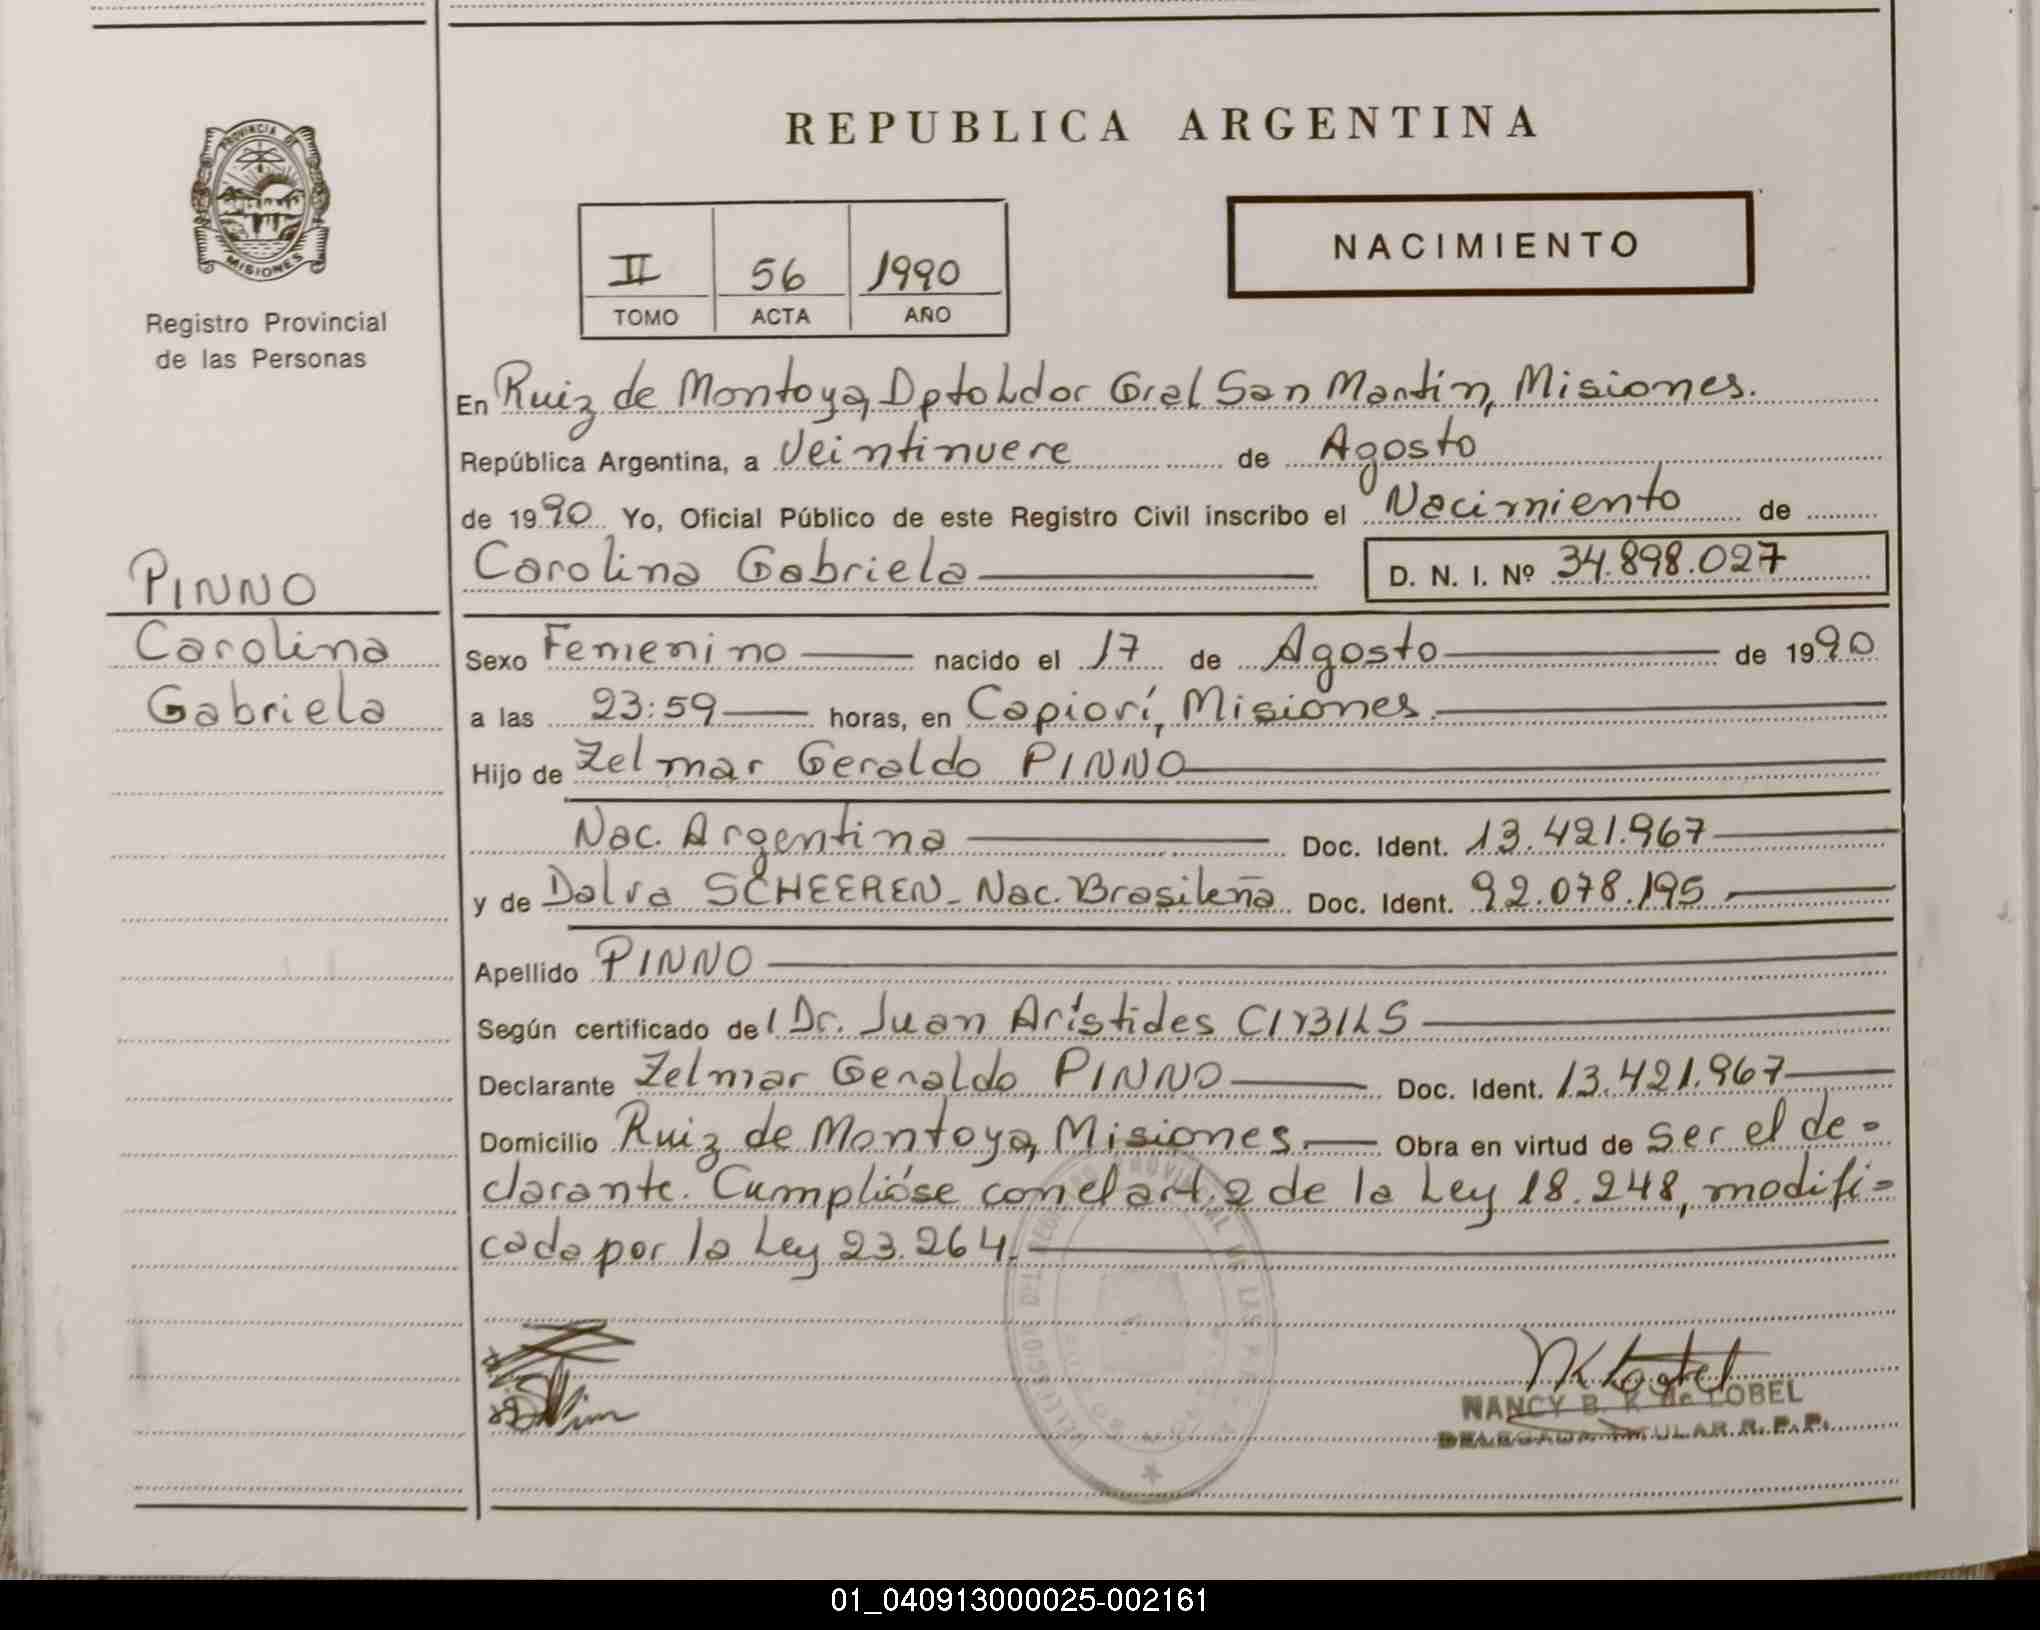 REPUBLICA ARGENTINA
PROVINCIA DE
MISIONES
Registro Provincial
de las Personas
II 56 1990
TOMO ACTA AÑO
NACIMIENTO
En Ruiz de Montoya, Dpto Ldor Gral San Martín, Misiones.
República Argentina, a Veintinueve de Agosto
de 1990 Yo, Oficial Público de este Registro Civil inscribo el Nacimiento de
Carolina Gabriela
D. N. I. Nº 34.898.027
PINNO
Carolina
Gabriela
Sexo Femenino nacido el 17 de Agosto de 1990
a las 23:59 horas, en Capiorí, Misiones.
Hijo de Zelmar Geraldo PINNO
Nac. Argentina Doc. Ident. 13.421.967
y de Dalva SCHEEREN - Nac. Brasileña Doc. Ident. 92.078.195
Apellido PINNO
Según certificado del Dr. Juan Arístides
Declarante Zelmar Geraldo PINNO Doc. Ident. 13.421.967
Domicilio Ruiz de Montoya, Misiones. Obra en virtud de ser el de-
clarante. Cumplióse con el art. 2 de la Ley 18.248, modifi-
cada por la Ley 23.264.
NANCY B. K. de LOBEL
DELEGADA TITULAR R.P.P.
01_040913000025-002161